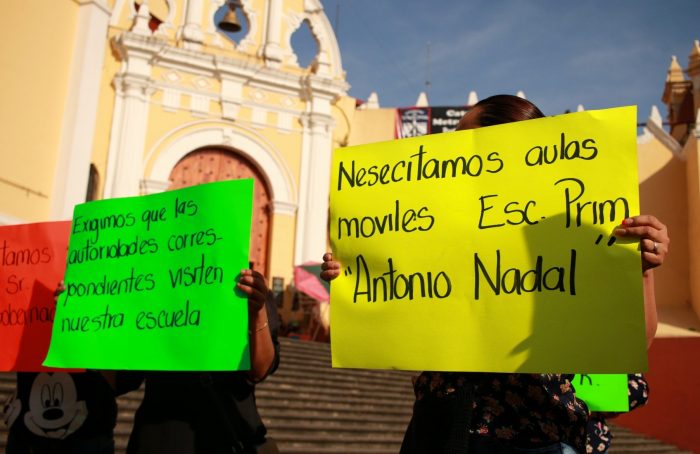 tamos
Sr.
obernad
Exigimos que las
autoridades corres-
pondientes visiten
nuestra escuela
Nesecitamos aulas
moviles Esc. Prim
"Antonio Nadal"